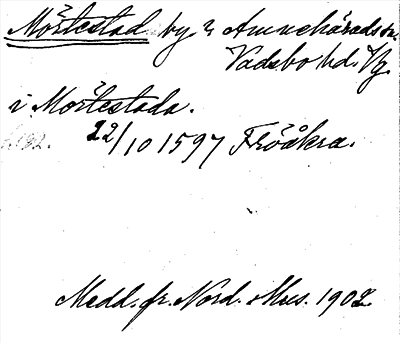 Mörtestad by i Amnehärads sn.
Vadsbo hd. Vg.
i Mörtestada.
22/10 1597 Fröåkra.
Medd. fr. Nord. Mus. 1902